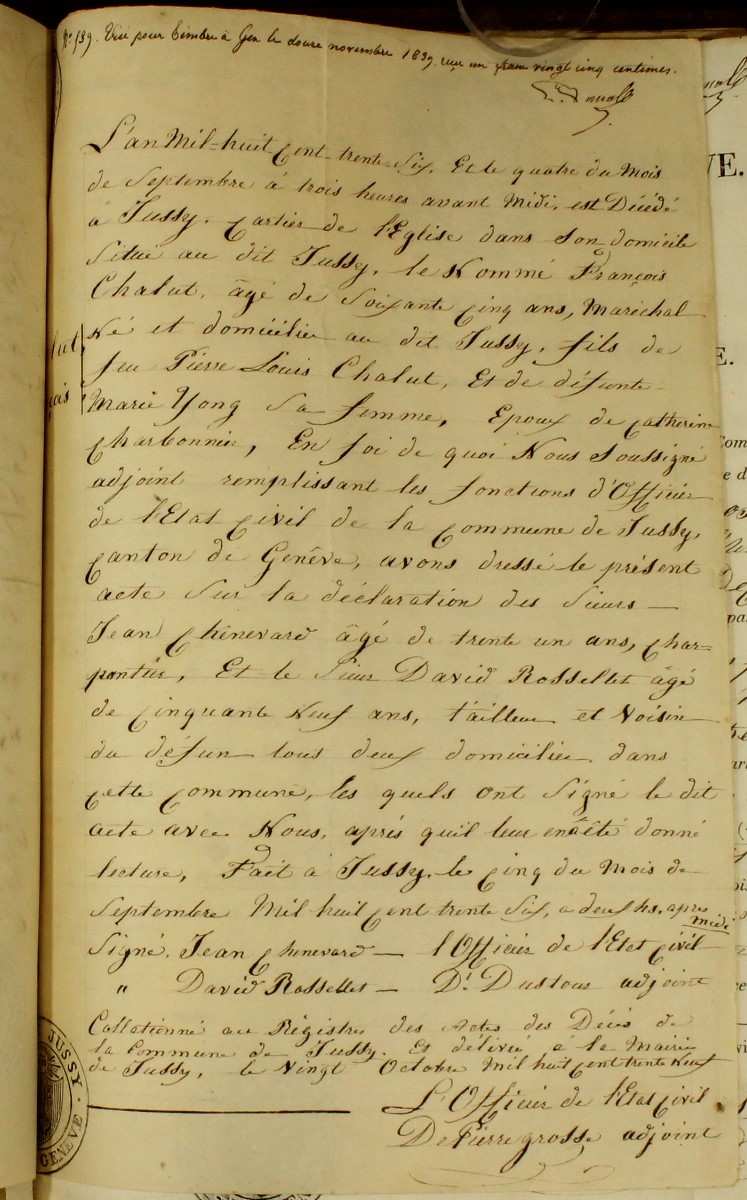 No 739. Visé pour timbre à Gex le douze novembre 1839. reçu un franc vingt cinq centimes.
L'an Mil-huit-Cent-trente-Six, Et le quatre du Mois
de Septembre à trois heures avant Midi, est Décédé
à Jussy, Cartier de l'Eglise dans Son domicile
Situé au dit Jussy, le Nommé François
Chalut, âgé de Soixante Cinq ans, Maréchal
Né et domicilié au dit Jussy, fils de
feu Pierre Louis Chalut, Et de défunte
Marie Yong Sa femme, Epoux de Catherine
Charbonnier, En foi de quoi Nous Soussigné
adjoint remplissant les fonctions d'Officier
de l'Etat Civil de la Commune de Jussy,
Canton de Genêve, avons dressé le présent
acte Sur la déclaration des Sieurs
Jean Chênevard âgé de trente un ans, Char=
pentier, Et le Sieur David Rossellet âgé
de Cinquante Neuf ans, tailleur et Voisin
du défun tous deux domicilié dans
Cette Commune, les quels ont Signé le dit
acte avec Nous, aprés quil leur en à été donné
lecture, Fait à Jussy, le Cinq du Mois de
Septembre Mil huit Cent trente Six, a deux hs. apres
midi
Signé, Jean Chenevard — l'Officier de l'Etat Civil
" David Rossellet — Ds. Dustour adjoint
Collationné au Régistre des Actes des Décés de
la Commune de Jussy. Et délivré à la Mairie
de Jussy, le Vingt Octobre Mil huit Cent trente Neuf
L'Officier de l'Etat Civil
DePierregrosse adjoint
JUSSY
GENEVE
VE.
E.